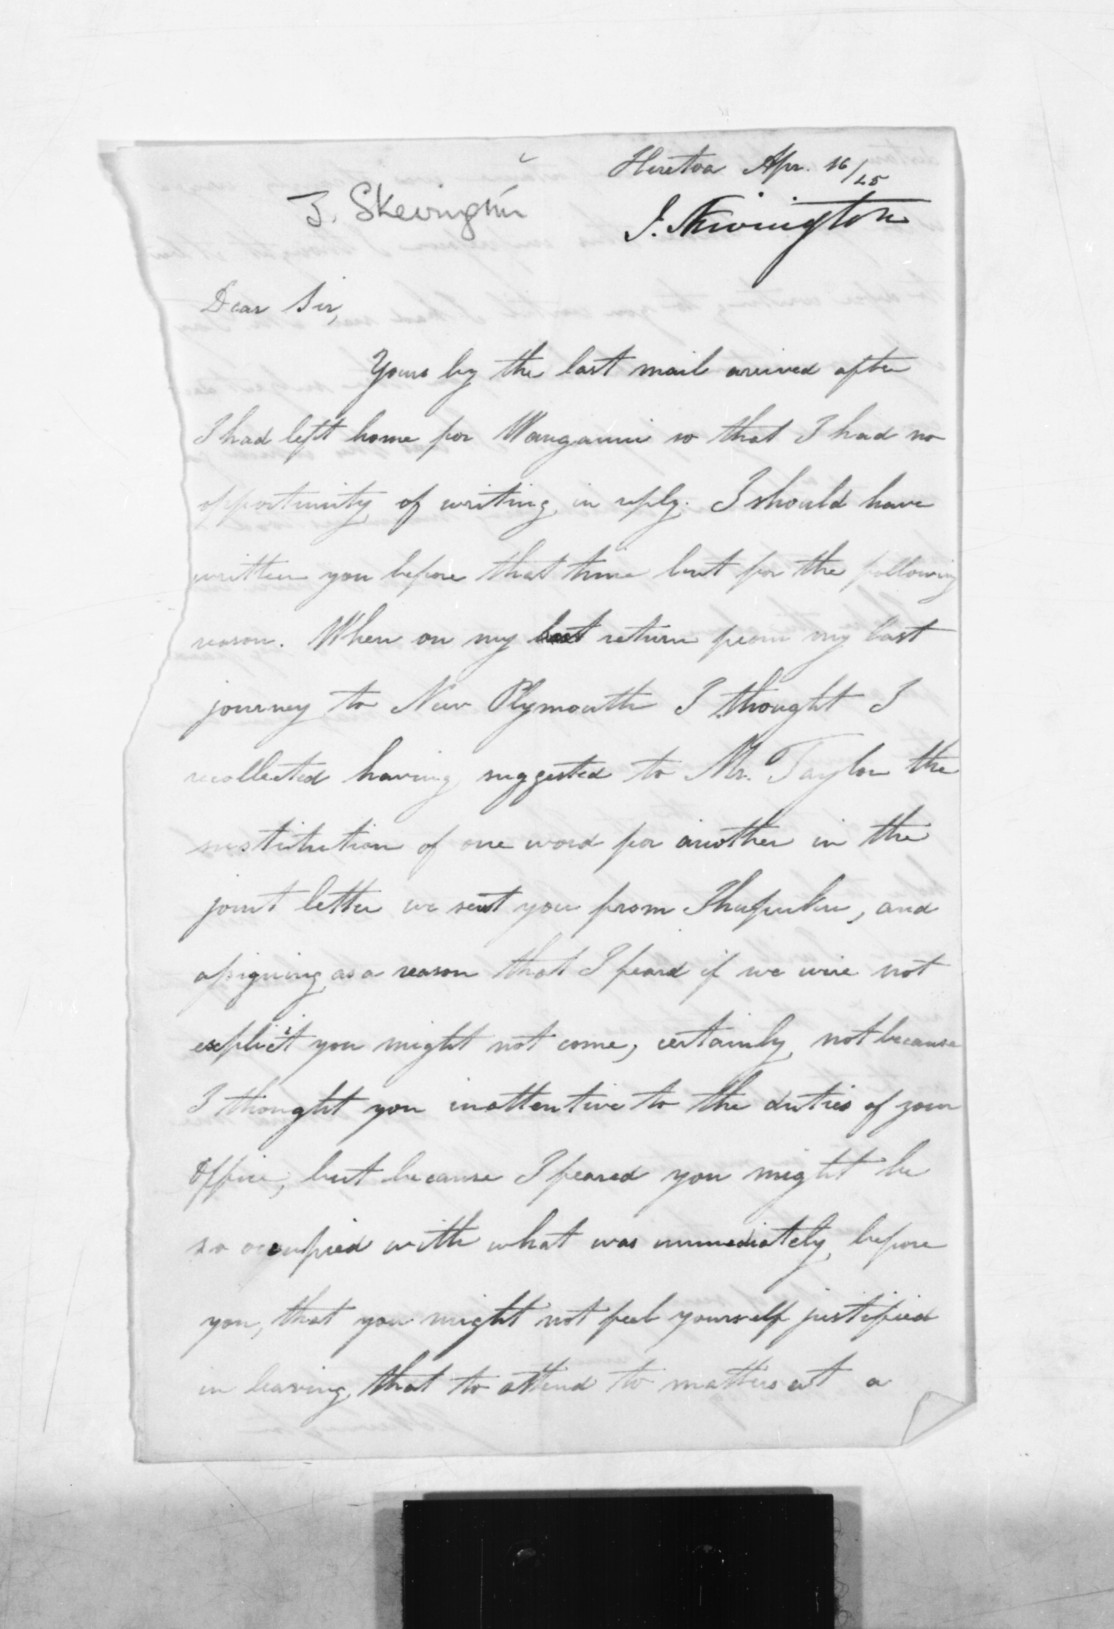 Heretoa Apr. 16/45
J. Skevington
J. Skevington
Dear Sir,
Yours by the last mail arrived after
I had left home for Wanganui so that I had no
opportunity of writing in reply. I should have
written you before that time but for the following
reason. When on my return from my last
journey to New Plymouth I thought I
recollected having suggested to Mr. Taylor the
substitution of one word for another in the
joint letter we sent you from and
assigning as a reason that I feard if we were not
explicit you might not come, certainly not because
I thought you inattentive to the duties of your
Office, but because I feared you might be
so occupied with what was immediately before
you, that you might not feel yourself justified
in leaving that to attend to matters at a